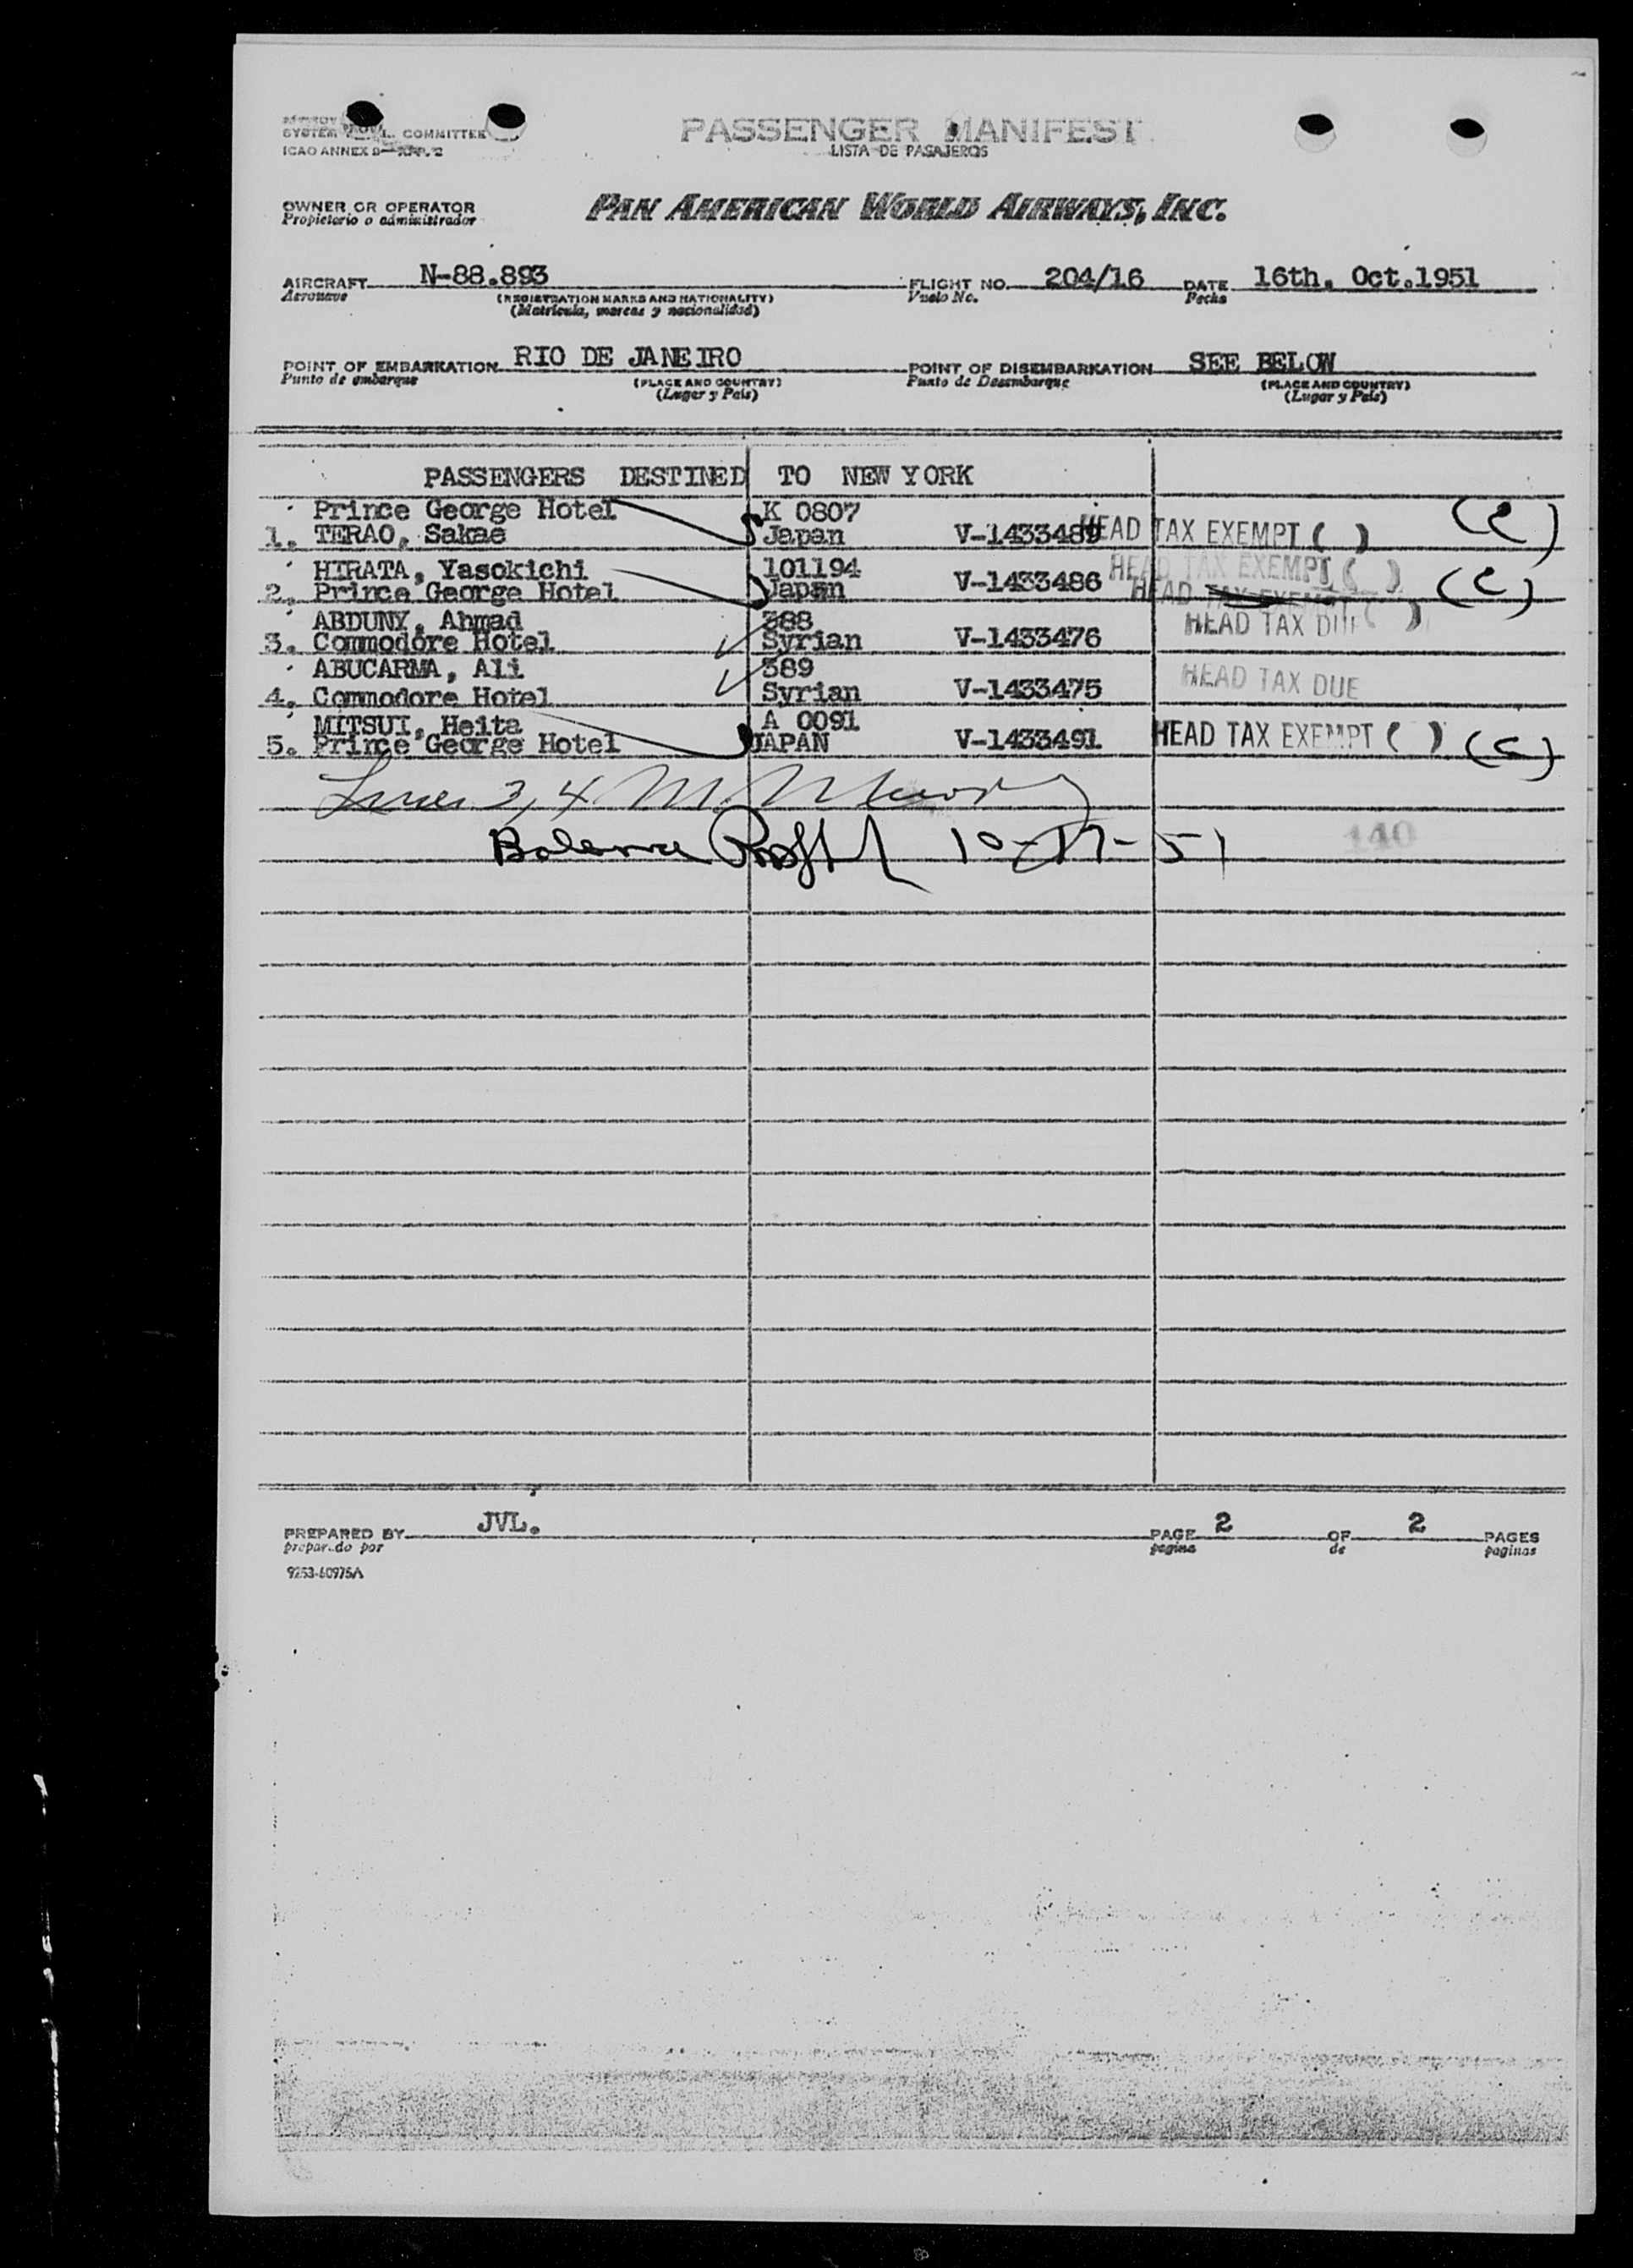 SYSTEM COMMITTEE
ICAO ANNEX 9
PASSENGER MANIFEST
LISTA DE PASAJEROS
OWNER OR OPERATOR
Propietario o administrador
PAN AMERICAN WORLD AIRWAYS, INC.
AIRCRAFT N-88.893 FLIGHT NO. 204/16 DATE 16th. Oct.1951
Aeronave (REGISTRATION MARKS AND NATIONALITY) Vuelo No. Fecha
(Matricula, marcas y nacionalidad)
POINT OF EMBARKATION RIO DE JANEIRO POINT OF DISEMBARKATION SEE BELOW
Punto de embarque (PLACE AND COUNTRY) Punto de Desembarque (PLACE AND COUNTRY)
(Lugar y Pais) (Lugar y Pais)
PASSENGERS DESTINED TO NEW YORK
Prince George Hotel K 0807 (C)
1. TERAO, Sakae Japan V-1433489 HEAD TAX EXEMPT ( )
HIRATA, Yasokichi 101194 HEAD TAX EXEMPT ( )
2. Prince George Hotel Japan V-1433486 HEAD TAX EXEMPT ( ) (C)
ABDUNY, Ahmad 388
3. Commodore Hotel Syrian V-1433476 HEAD TAX DUE
ABUCARMA, Ali 389
4. Commodore Hotel Syrian V-1433475 HEAD TAX DUE
MITSUI, Heita A 0091
5. Prince George Hotel JAPAN V-1433491 HEAD TAX EXEMPT ( ) (C)
Lines 3, 4 M.
10-17-51 140
PREPARED BY JVL. PAGE 2 OF 2 PAGES
preparado por pagina de paginas
9253-60975A